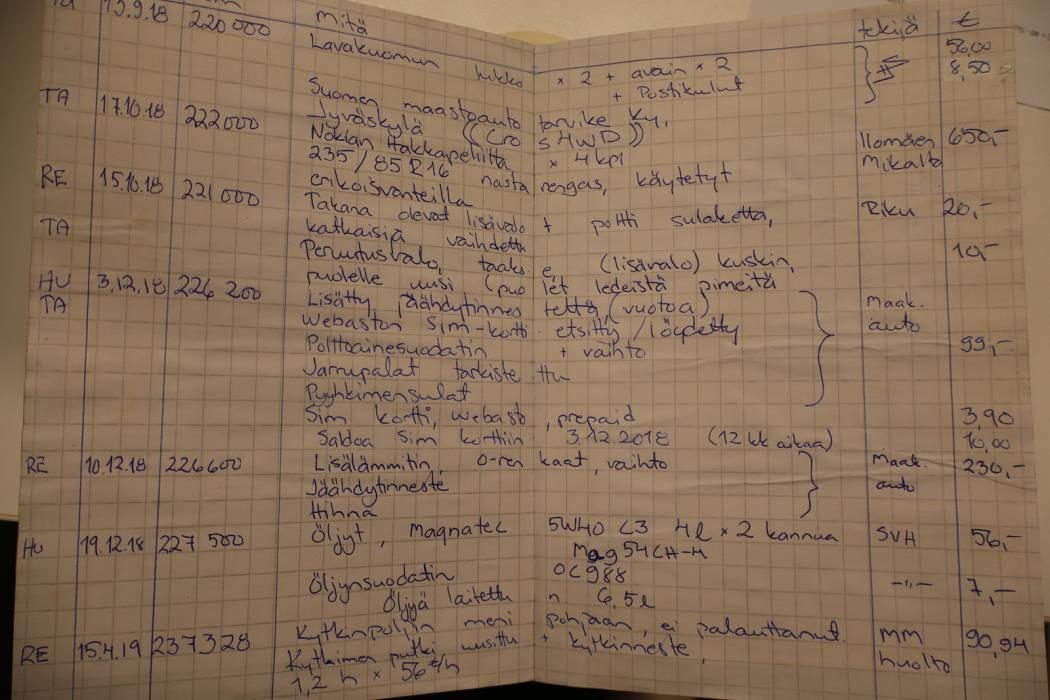 mitä tekijä €
TA 13.9.18 220 000 Lavakuomun lukko × 2 + avain × 2 56,00
+ Postikulut 8,50
TA 17.10.18 222000 Suomen maastoauto tarvike Ky,
Jyväskylä ((Cro s 4WD))
Nokian Hakkapeliitta × 4 kpl Ilomäen 650,-
235/85 R16 nasta rengas, käytetyt Mikalta
erikoisvanteilla
RE 15.10.18 221 000 Takana olevat lisävalo + poltti sulaketta, Riku 20,-
katkaisia vaihdettu
TA Peruutusvalo, taakse, (lisävalo) kuskin, 10,-
puolelle uusi (puolet ledeistä pimeitä
HU 3.12.18 226 200 Lisätty jäähdytinnestettä, (vuotoa) maak.
TA Webaston sim-kortti etsitty / löydetty auto
Polttoainesuodatin + vaihto 99,-
Jarrupalat tarkistettu
Pyyhkimensulat
Sim kortti, webasto, prepaid 3,90
Saldoa Sim korttiin 3.12.2018 (12 kk aikaa) 10,00
RE 10.12.18 226600 Lisälämmitin, o-renkaat, vaihto maak. 230,-
Jäähdytinneste auto
Hihna
Hu 19.12.18 227 500 Öljyt, Magnatec 5W40 C3 4l × 2 kannua SVH 56,-
Mag54CH-H
Öljynsuodatin OC988 -"- 7,-
Öljyä laitettu n 6,5l
RE 15.4.19 237328 Kytkinpoljin meni pohjaan, ei palauttanut. MM 90,94
Kytkimen putki, uusittu + kytkinneste, huolto
1,2 h × 56 €/h